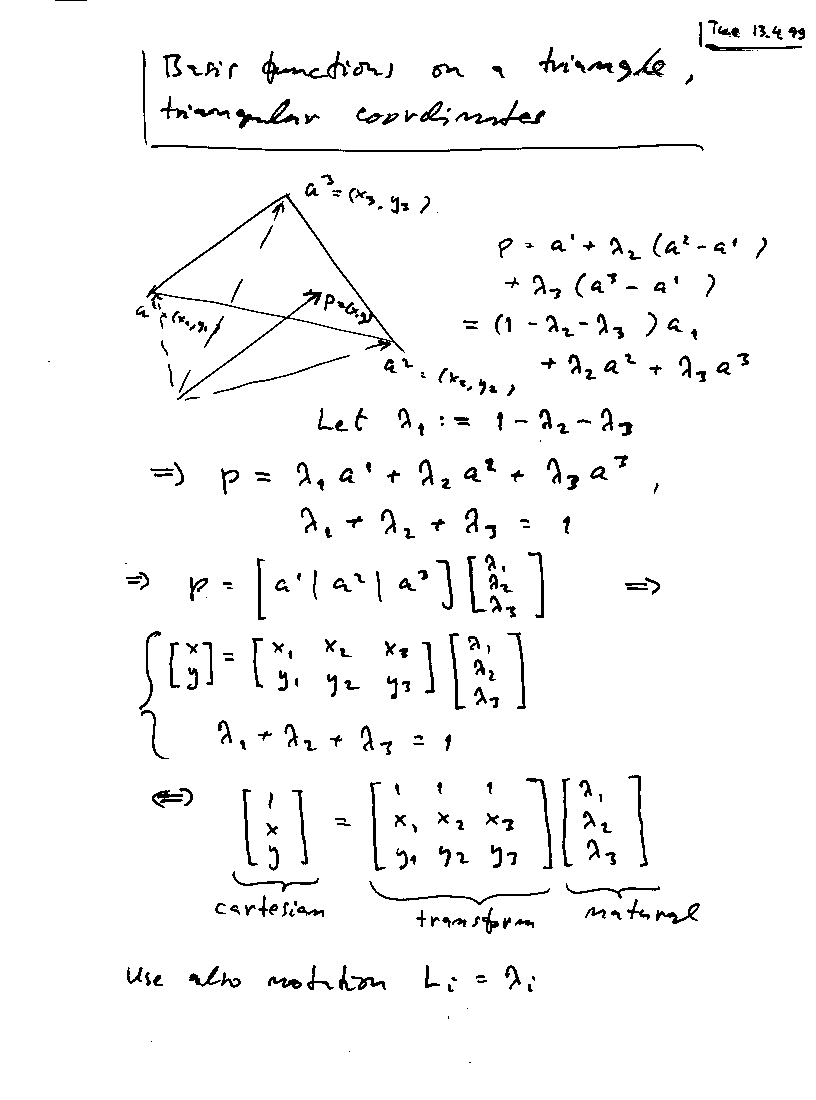 Tue 13.4.99
Basis functions on a triangle,
triangular coordinates
a³ = (x₃, y₃)
p = a¹ + λ₂ (a² - a¹)
+ λ₃ (a³ - a¹)
= (1 - λ₂ - λ₃) a₁
+ λ₂ a² + λ₃ a³
a¹ = (x₁, y₁)
p = (x, y)
a² = (x₂, y₂)
Let λ₁ := 1 - λ₂ - λ₃
⇒ p = λ₁ a¹ + λ₂ a² + λ₃ a³,
λ₁ + λ₂ + λ₃ = 1
⇒ p = [a¹ | a² | a³] [λ₁ λ₂ λ₃] ⇒
{ [x y] = [x₁ x₂ x₃ y₁ y₂ y₃] [λ₁ λ₂ λ₃]
λ₁ + λ₂ + λ₃ = 1
⇔ [1 x y] = [1 1 1 x₁ x₂ x₃ y₁ y₂ y₃] [λ₁ λ₂ λ₃]
cartesian transform natural
Use also notation Lᵢ = λᵢ